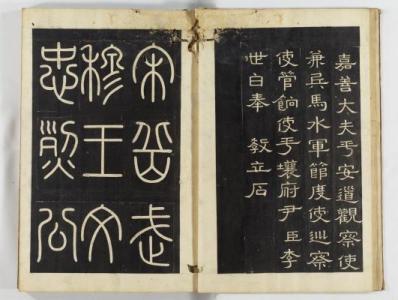 嘉善大夫平安道觀察使
兼兵馬水軍節度使巡察
使管餉使平壤府尹臣李
世白奉 敎立石
宋岳武
穆王文
忠烈公